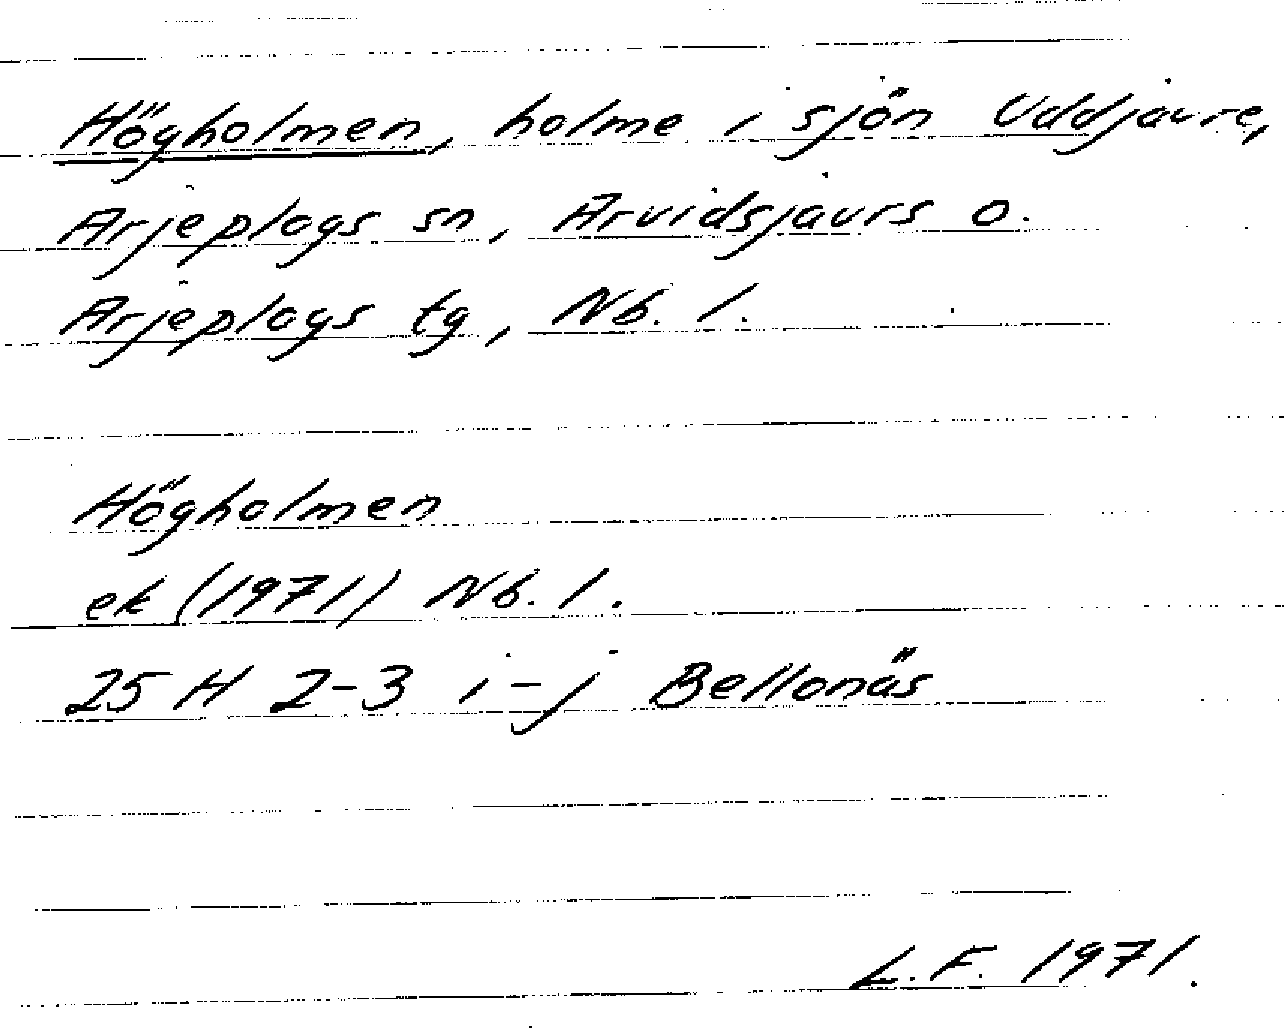 Högholmen, holme i sjön Uddjaure,
Arjeplogs sn, Arvidsjaurs o.
Arjeplogs tg, Nb. l.
Högholmen
ek (1971) Nb. l.
25 H 2-3 i-j Bellonäs
L.F. 1971.